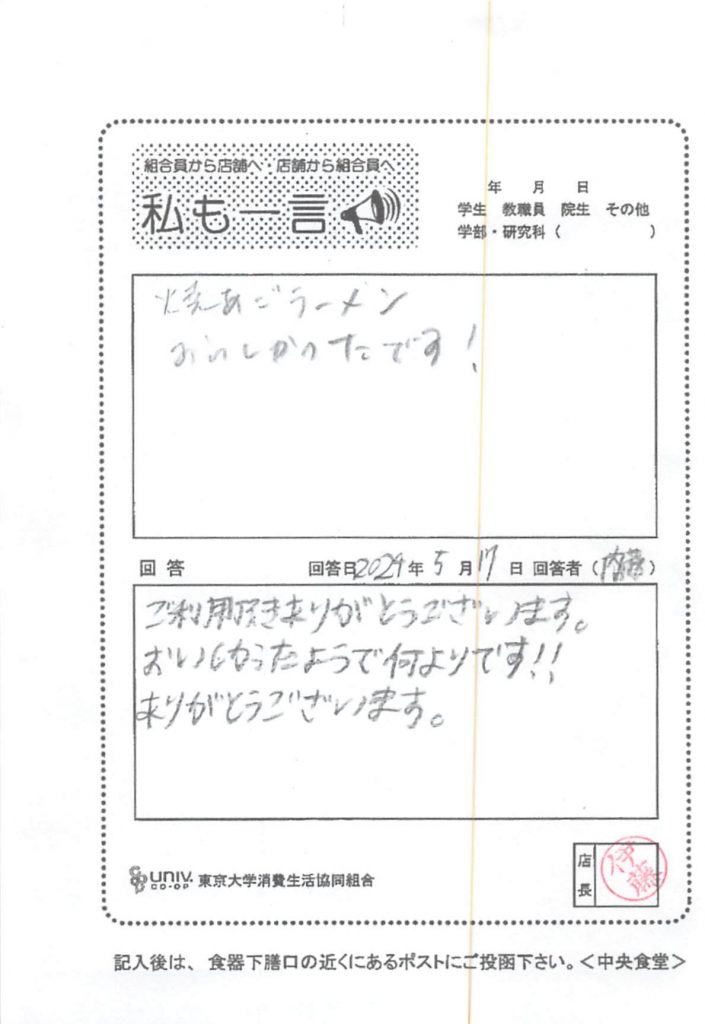 組合員から店舗へ・店舗から組合員へ
私も一言
年 月 日
学生 教職員 院生 その他
学部・研究科( )
焼あごラーメン
おいしかったです!
回答 回答日2024年5月17日 回答者(内藤)
ご利用頂きありがとうございます。
おいしかったようで何よりです!!
ありがとうございます。
UNIV. CO-OP 東京大学消費生活協同組合
店長 伊藤
記入後は、食器下膳口の近くにあるポストにご投函下さい。<中央食堂>